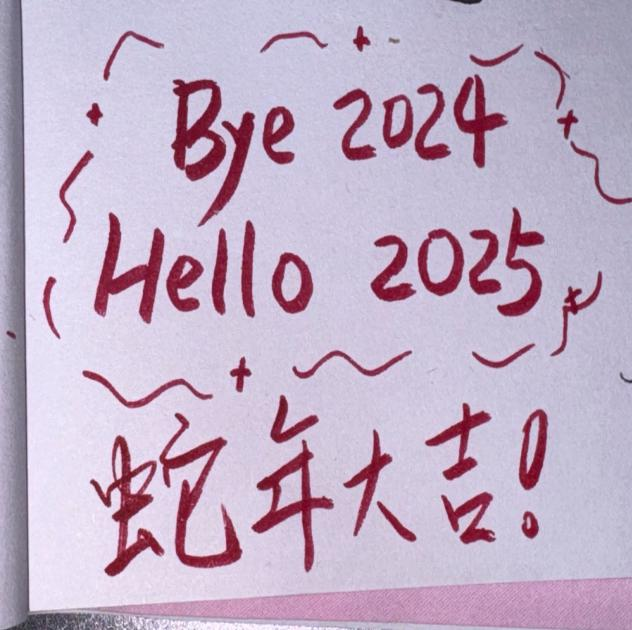 Bye 2024
Hello 2025
蛇年大吉!